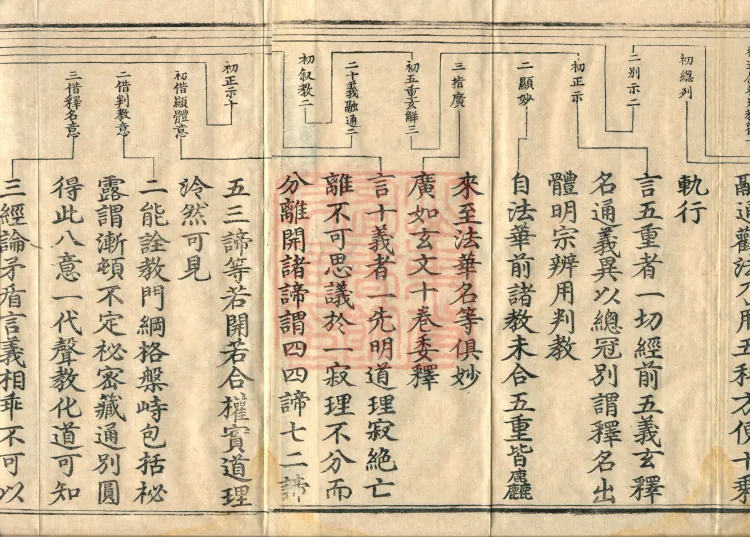 初總列
二別示二
初正示
二顯妙
三指廣
初五重玄解三
二十義融通二
初叙教二
初正示十
初借顯體意
二借判教意
三借釋名意
融通觀法不用五科方便十乘
軌行
言五重者一切經前五義玄釋
名通義異以總冠別謂釋名出
體明宗辨用判教
自法華前諸教未合五重皆麤
來至法華名等俱妙
廣如玄文十卷委釋
言十義者一先明道理寂絕亡
離不可思議於一寂理不分而
分離開諸諦謂四四諦七二諦
五三諦等若開若合權實道理
泠然可見
二能詮教門綱格盤峙包括祕
露謂漸頓不定祕密藏通別圓
得此八意一代聲教化道可知
三經論矛盾言義相乖不可以